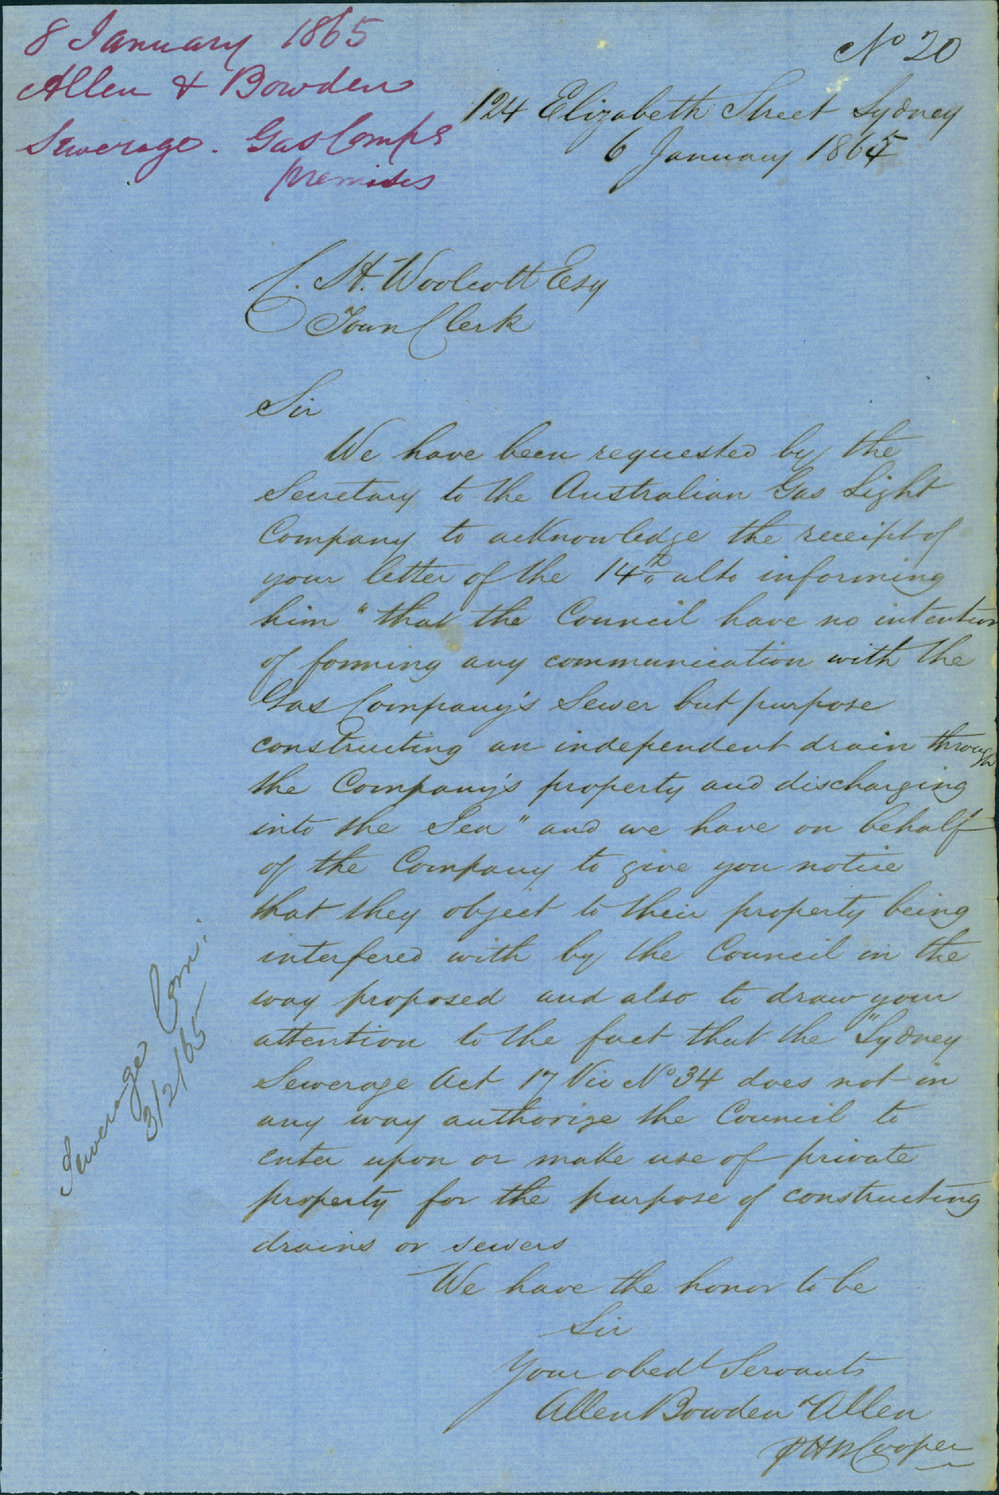 8 January 1865
Allen & Bowden
Sewerage. Gas Comps
premises
No 20
124 Elizabeth Street Sydney
6 January 1865
C. H. Woolcott Esq
Town Clerk
Sir
We have been requested by the
Secretary to the Australian Gas Light
Company to acknowledge the receipt of
your letter of the 14th ulto informing
him "that the Council have no intention
of forming any communication with the
Gas Company's Sewer but purpose
constructing an independent drain through
the Company's property and discharging
into the Sea" and we have on behalf
of the Company to give you notice
that they object to their property being
interfered with by the Council in the
way proposed and also to draw your
attention to the fact that the "Sydney
Sewerage Act 17 Vic No 34 does not in
any way authorize the Council to
enter upon or make use of private
property for the purpose of constructing
drains or sewers
We have the honor to be
Sir
Your obedt Servants
Allen Bowden & Allen
Cooper
Sewerage Com.
3/2/65